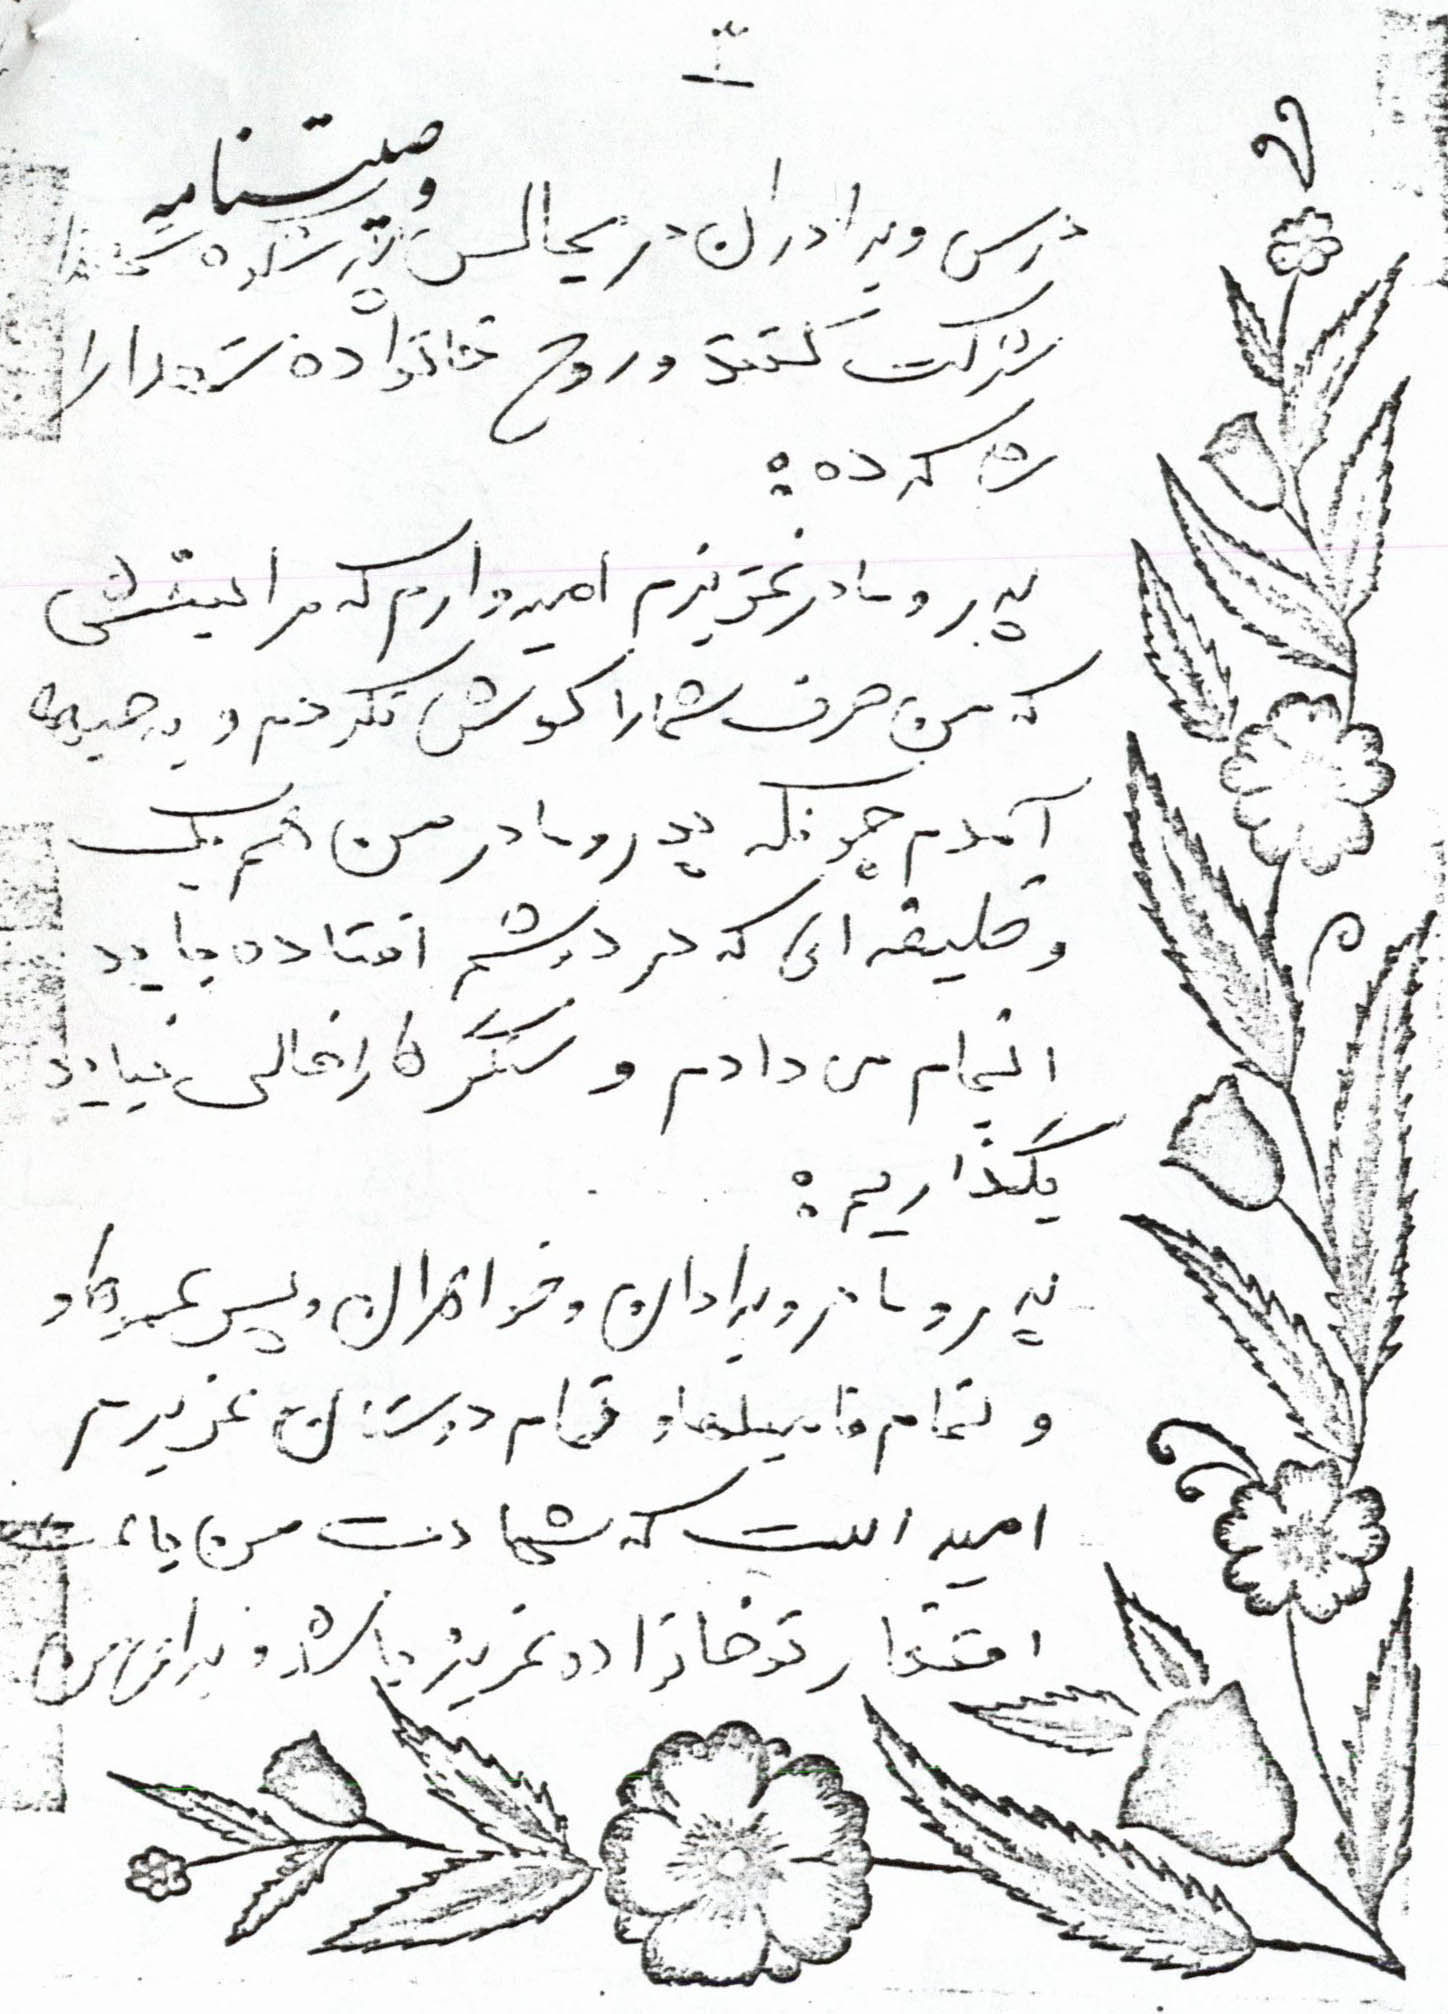 وصیتنامه
درس و برادران در مجالس پر شکوه شهدا
شرکت کنند و روح خانواده شهدا را
شاد کرده:
پدر و مادر عزیزم امیدوارم که مرا ببخشی
که من حرف شما را گوش نکردم و به جبهه
آمدم چونکه پدر و مادر من هم یک
وظیفه ای که در دوشم افتاده باید
انجام می دادم و سنگرها را خالی نباید
بگذاریم:
پدر و مادر و برادان و خواهران و پسر عموها و
و تمام فامیلها و تمام دوستان عزیزم
امید است که شهادت من باعث
افتخار تو خانواده عزیز باشد و برای من